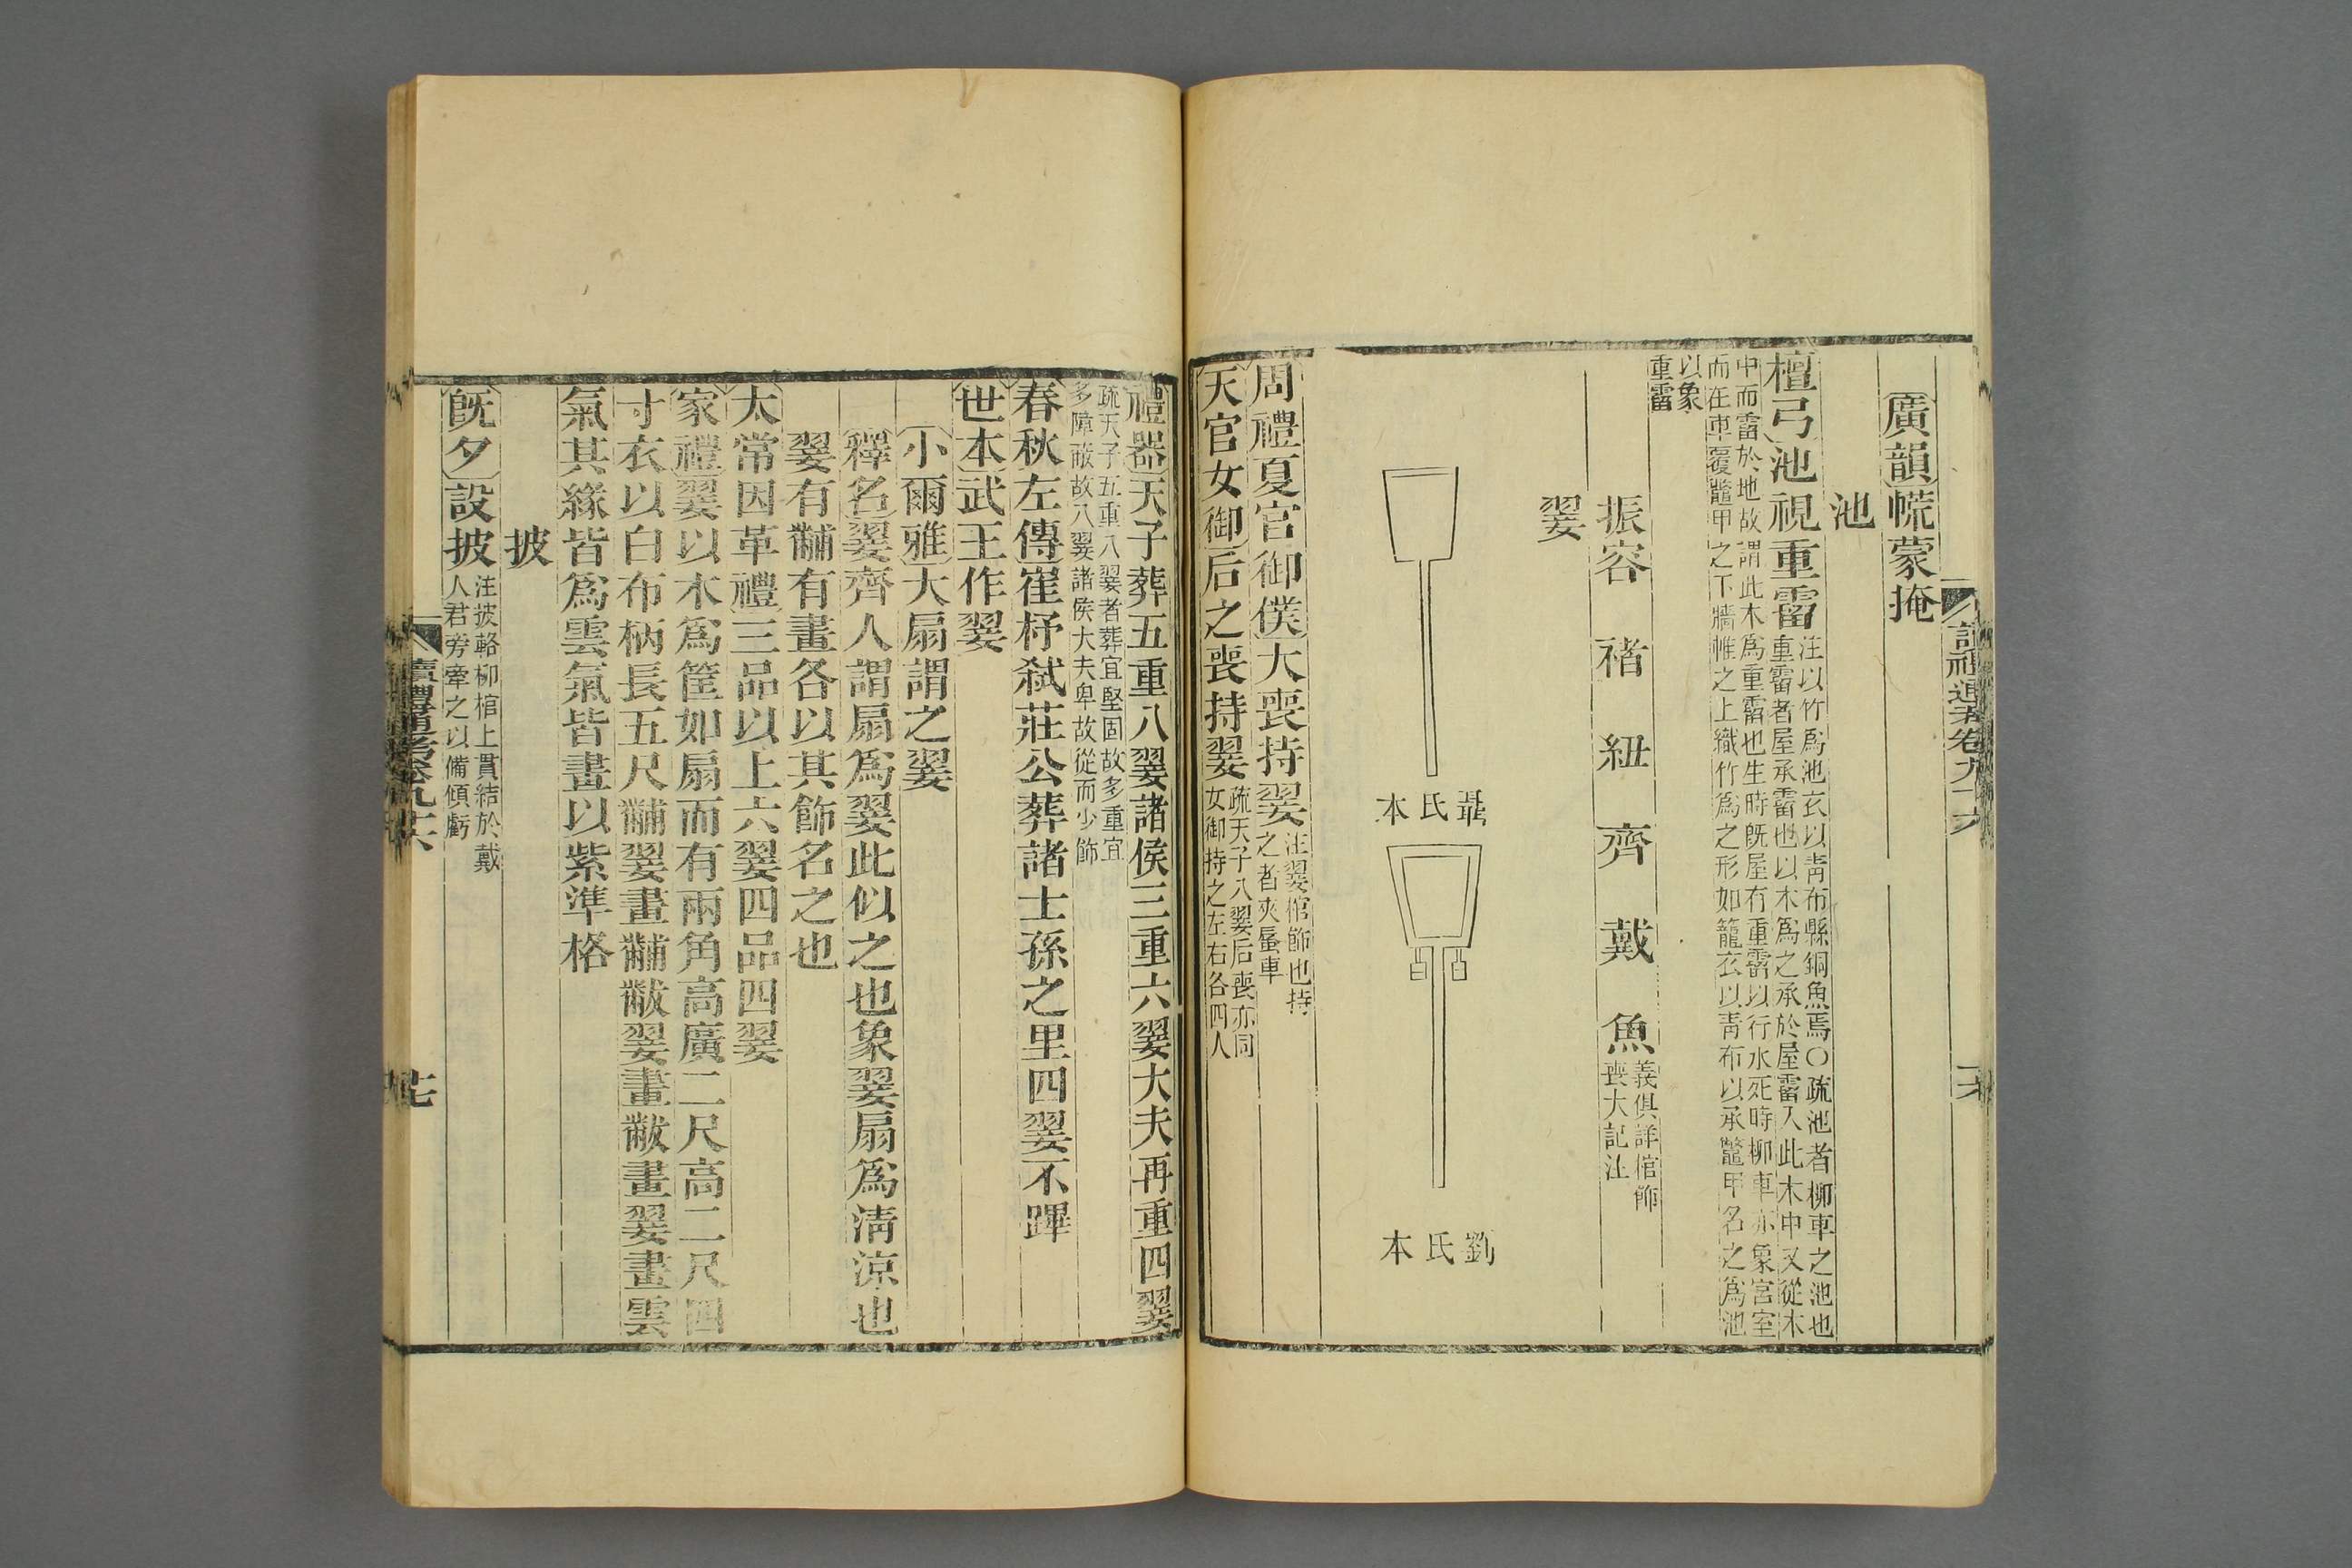 讀禮通考卷九十六
廣韻㡆蒙掩
池
檀弓池視重霤
注以竹爲池衣以靑布縣銅魚焉〇疏池者柳車之池也
重霤者屋承霤也以木爲之承於屋霤入此木中又從木
中而霤於地故謂此木爲重霤也生時旣屋有重霤以行水死時柳車亦象宮室
而在車覆鼈甲之下牆帷之上織竹爲之形如籠衣以靑布以承鼈甲名之爲池
以象
重霤
振容 褚 紐 齊 戴 魚
義俱詳棺飾
喪大記注
翣
聶氏本
劉氏本
周禮夏官御僕大喪持翣
注翣棺飾也持
之者夾蜃車
天官女御后之喪持翣
疏天子八翣后喪亦同
女御持之左右各四人
禮器天子葬五重八翣諸侯三重六翣大夫再重四翣
疏天子五重八翣者葬宜堅固故多重宜
多障蔽故八翣諸侯大夫卑故從而少飾
春秋左傳崔杼弑莊公葬諸士孫之里四翣不蹕
世本武王作翣
小爾雅大扇謂之翣
釋名翣齊人謂扇爲翣此似之也象翣扇爲淸涼也
翣有黼有畫各以其飾名之也
太常因革禮三品以上六翣四品四翣
家禮翣以木爲筐如扇而有兩角高廣二尺高二尺四
寸衣以白布柄長五尺黼翣畫黼黻翣畫黻畫翣畫雲
氣其緣皆爲雲氣皆畫以紫準格
披
旣夕設披
注披輅柳棺上貫結於戴
人君旁牽之以備傾虧
讀禮通考卷九十六
七